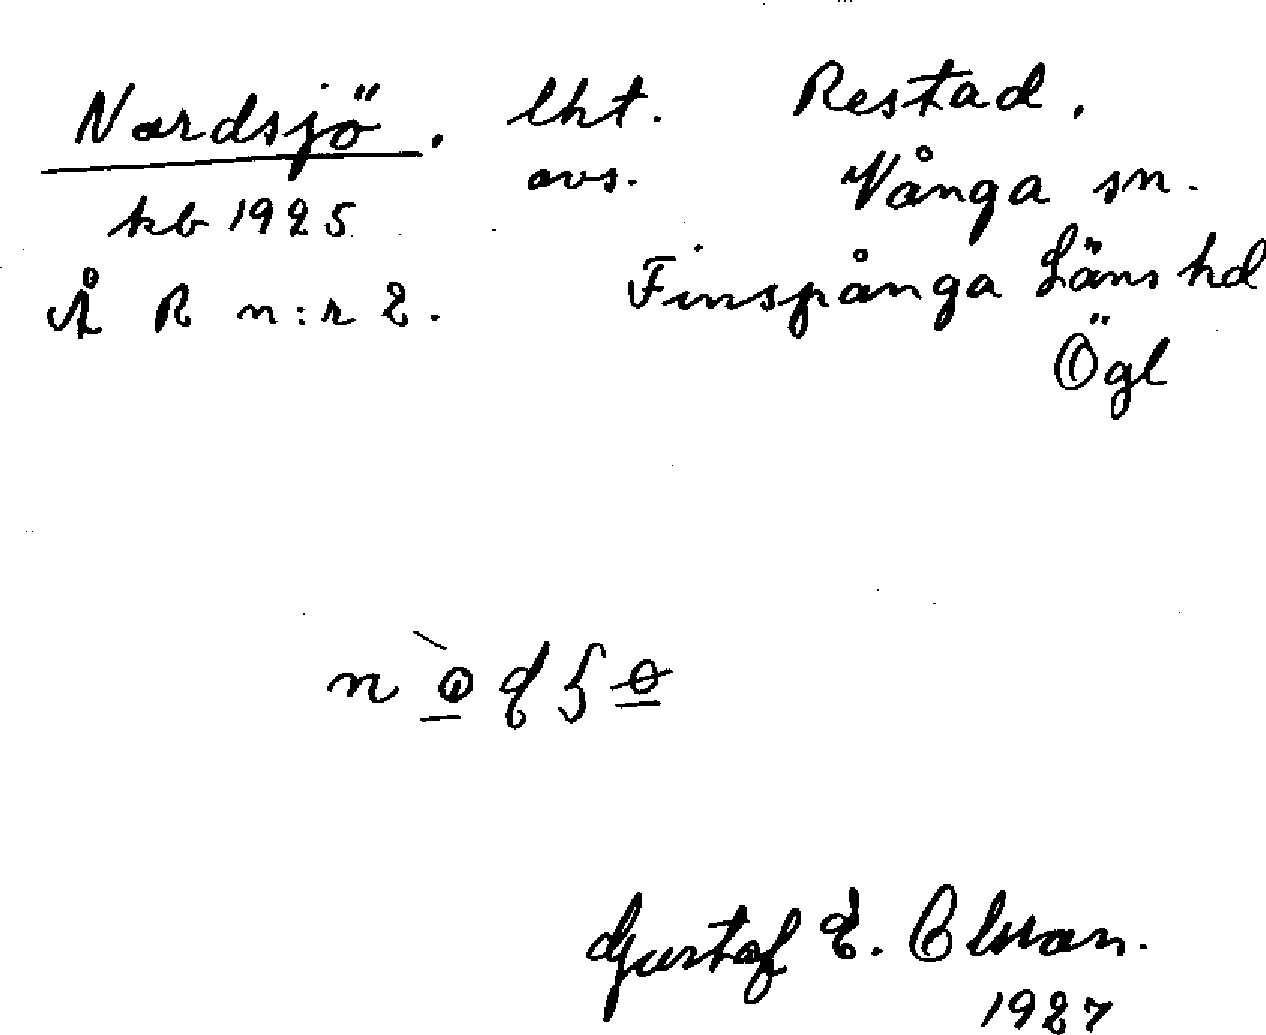 Nordsjö. lht. Restad.
avs. Vånga sn.
kb 1925
Å R n:r 2. Finspånga Läns hd
Ögl
Gustaf E. Olsson.
1927